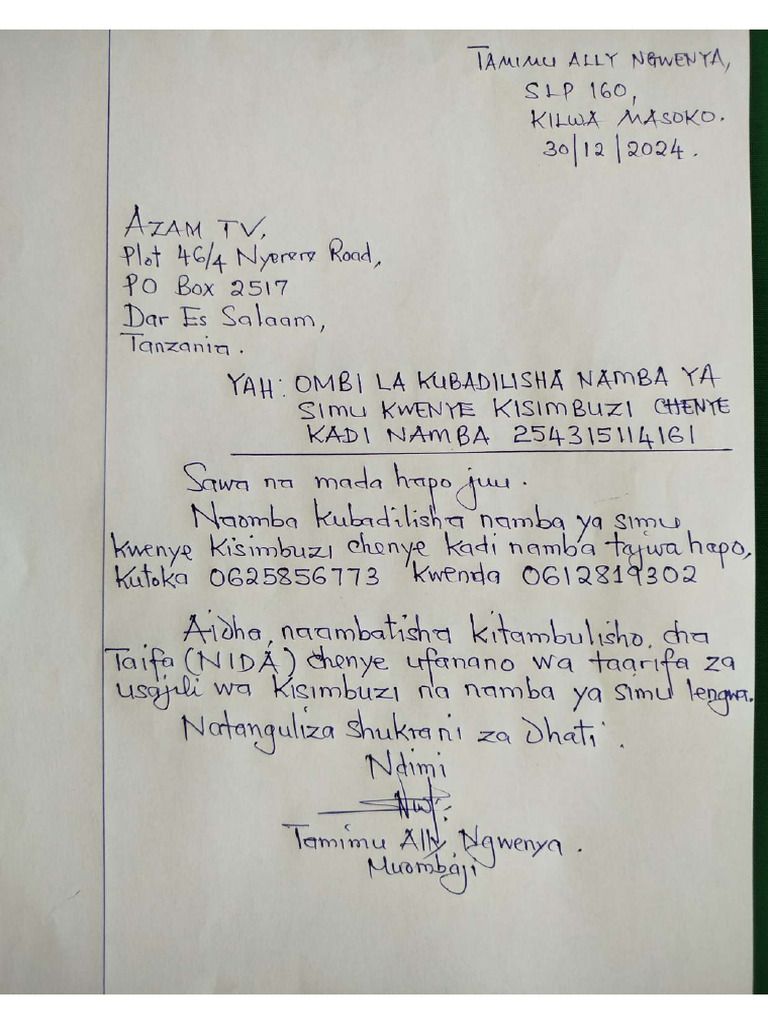 TAMIMU ALLY NGWENYA,
SLP 160,
KILWA MASOKO.
30/12/2024.
AZAM TV,
Plot 46/4 Nyerere Road,
PO Box 2517
Dar Es Salaam,
Tanzania.
YAH: OMBI LA KUBADILISHA NAMBA YA
SIMU KWENYE KISIMBUZI CHENYE
KADI NAMBA 254315114161
Sawa na mada hapo juu.
Naomba kubadilisha namba ya simu
kwenye kisimbuzi chenye kadi namba tajwa hapo,
kutoka 0625856773 kwenda 0612819302
Aidha, naambatisha kitambulisho cha
Taifa (NIDA) chenye ufanano wa taarifa za
usajili wa kisimbuzi na namba ya simu lengwa.
Natanguliza shukrani za dhati.
Ndimi
Tamimu Ally Ngwenya.
Muombaji